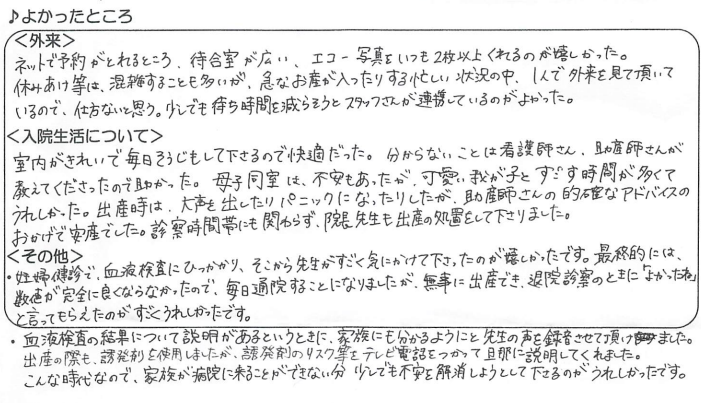 ♪よかったところ
<外来>
ネットで予約がとれるところ、待合室が広い、エコー写真をいつも2枚以上くれるのが嬉しかった。
休みあけ等は、混雑することも多いが、急なお産が入ったりする忙しい状況の中、1人で外来を見て頂いて
いるので、仕方ないと思う。少しでも待ち時間を減らそうとスタッフさんが連携しているのがよかった。
<入院生活について>
室内がきれいで毎日そうじもして下さるので快適だった。分からないことは看護師さん、助産師さんが
教えてくださったので助かった。母子同室は、不安もあったが、可愛い我が子とすごす時間が多くて
うれしかった。出産時は、大声を出したりパニックになったりしたが、助産師さんの的確なアドバイスの
おかげで安産でした。診察時間帯にも関わらず、院長先生も出産の処置をして下さりました。
<その他>
・妊婦健診で、血液検査にひっかかり、そこから先生がすごく気にかけて下さったのが嬉しかったです。最終的には、
数値が完全に良くならなかったので、毎日通院することになりましたが、無事に出産でき、退院診察のときに「よかったね」
と言ってもらえたのがすごくうれしかったです。
・血液検査の結果について説明があるというときに、家族にも分かるようにと先生の声を録音させて頂けました。
出産の際も、誘発剤を使用しましたが、誘発剤のリスク等をテレビ電話をつかって旦那に説明してくれました。
こんな時代なので、家族が病院に来ることができない分 少しでも不安を解消しようとして下さるのがうれしかったです。